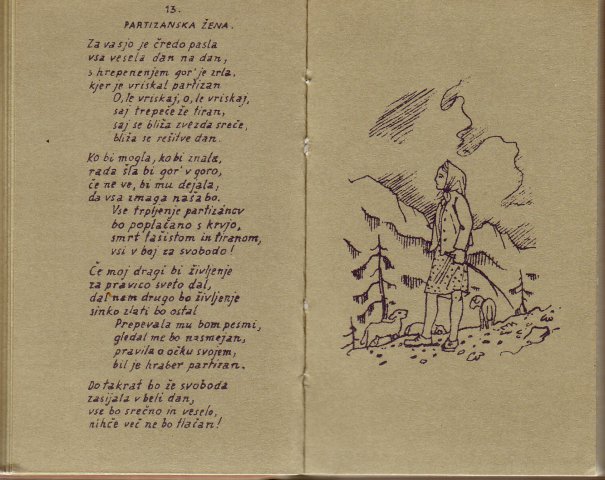 13.
PARTIZANSKA ŽENA.
Za vasjo je čredo pasla
vsa vesela dan na dan,
s hrepenenjem gor' je zrla,
kjer je vriskal partizan
O, le vriskaj, o, le vriskaj,
saj trepeče že tiran,
saj se bliža zvezda sreče,
bliža se rešitve dan.
Ko bi mogla, ko bi znala,
rada šla bi gor' v goro,
če ne ve, bi mu dejala,
da vsa zmaga naša bo.
Vse trpljenje partizanov
bo poplačano s krvjo,
smrt fašistom in tiranom,
vsi v boj za svobodo!
Če moj dragi bi življenje
za pravico sveto dal,
dal nam drugo bo življenje
sinko zlati bo ostal
Prepevala mu bom pesmi,
gledal me bo nasmejan,
pravila o očku svojem,
bil je hraber partizan.
Do takrat bo že svoboda
zasijala v beli dan,
vse bo srečno in veselo,
nihče več ne bo tlačan!